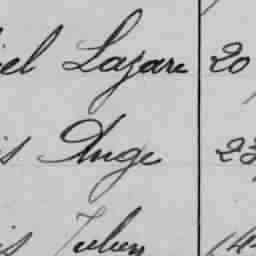 el Lazare 20
s Ange 23
is Julien 14